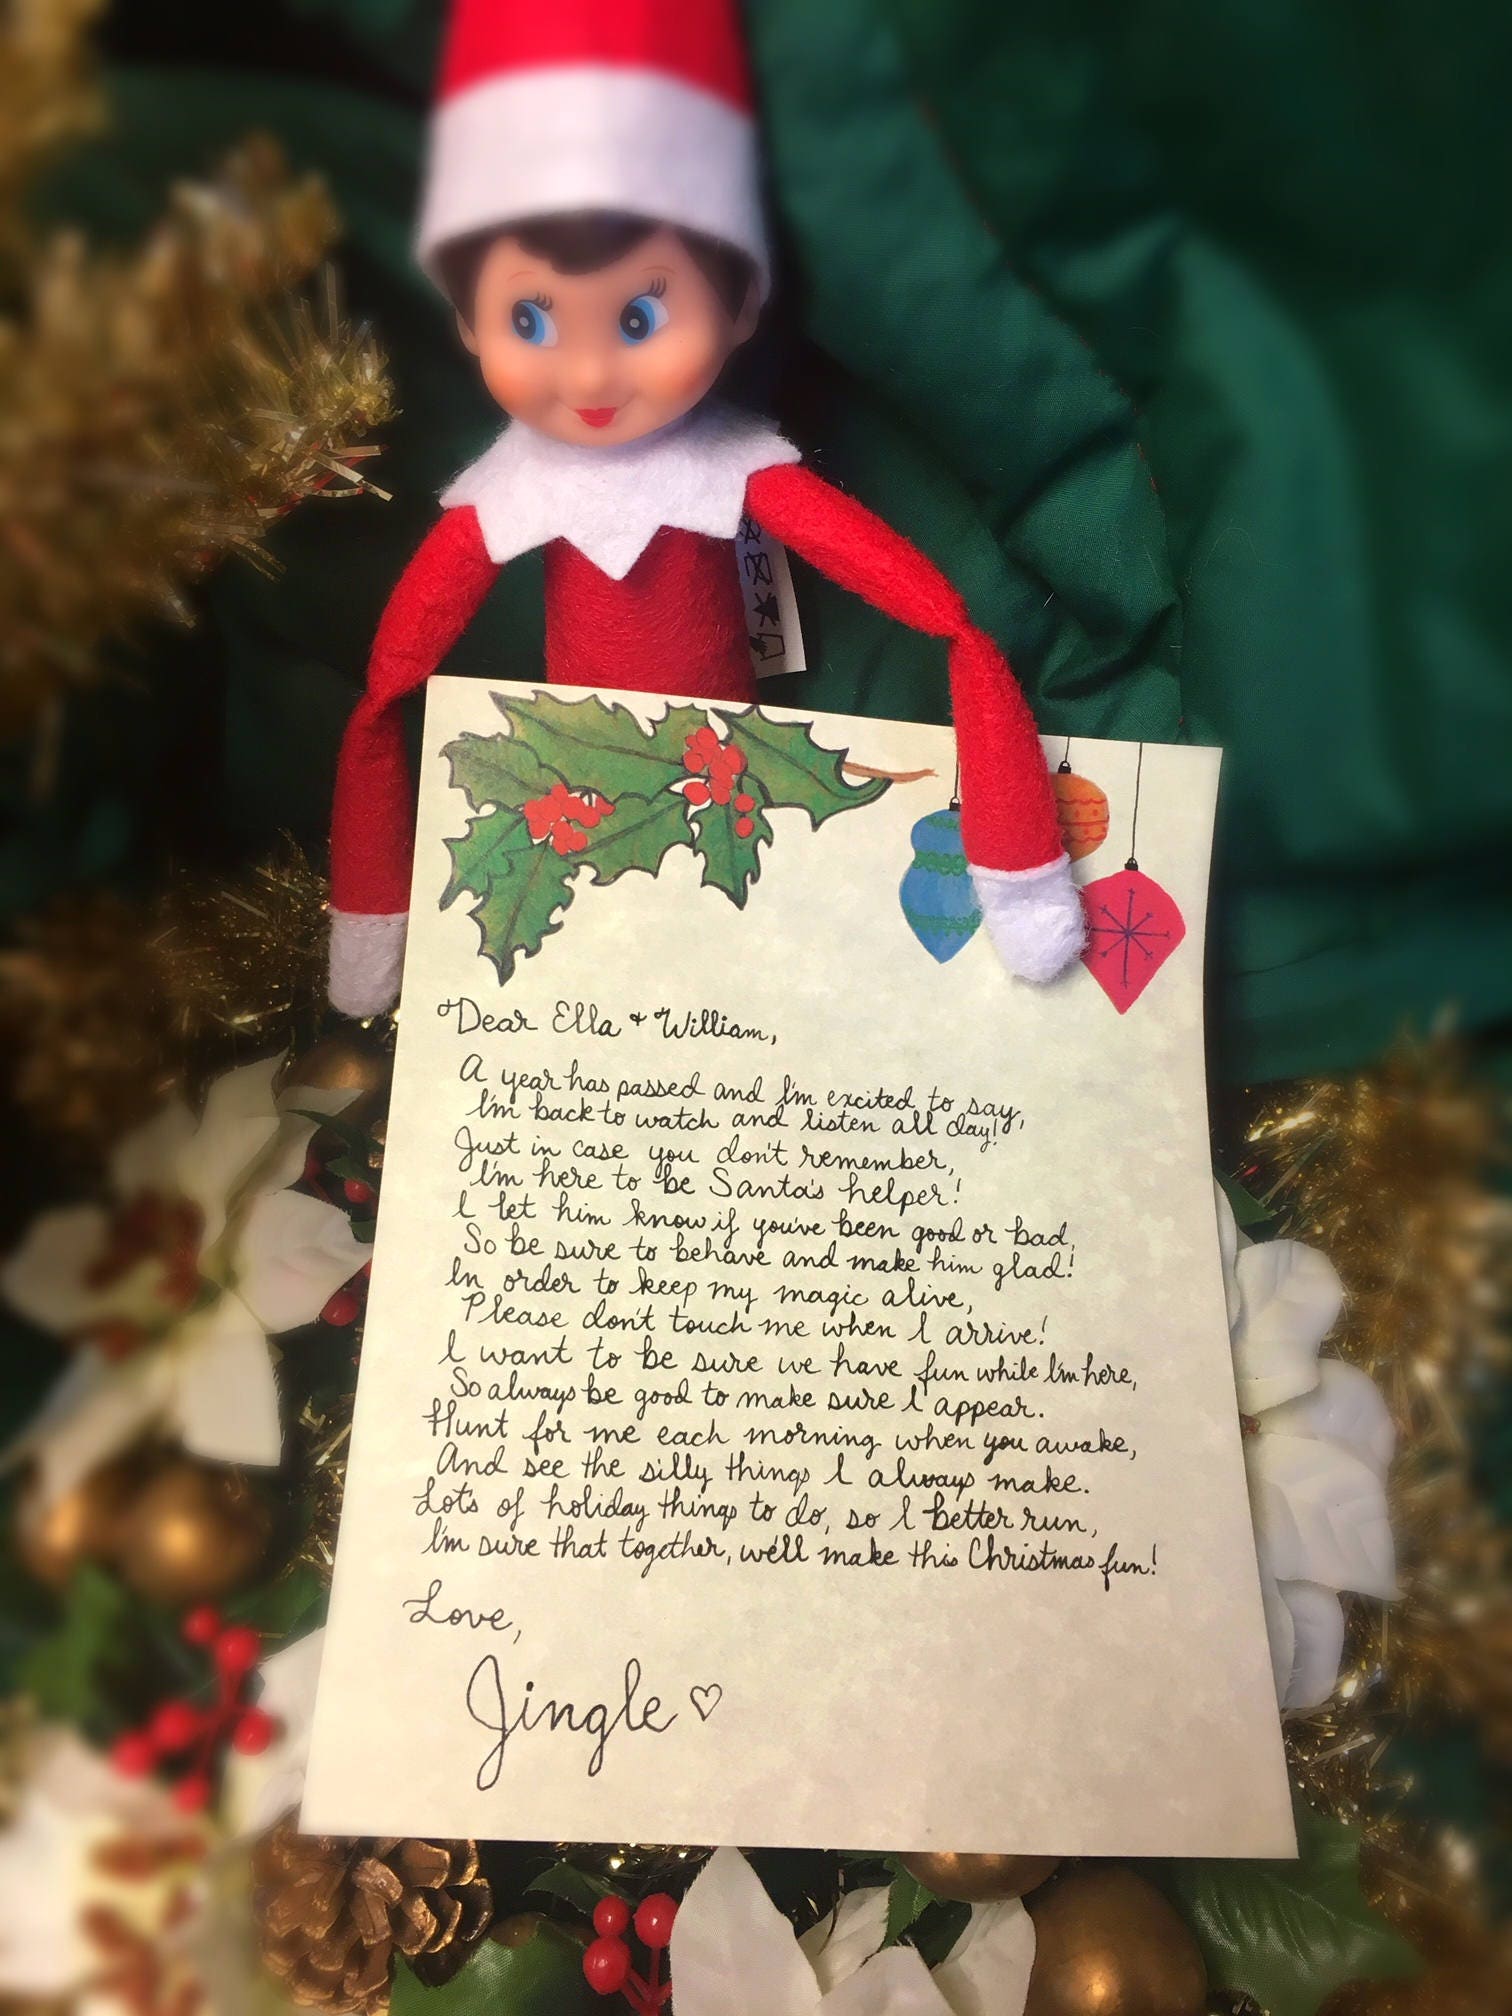 Dear Ella + William,
A year has passed and I'm excited to say,
I'm back to watch and listen all day!
Just in case you don't remember,
I'm here to be Santa's helper!
I let him know if you've been good or bad,
So be sure to behave and make him glad!
In order to keep my magic alive,
Please don't touch me when I arrive!
I want to be sure we have fun while I'm here,
So always be good to make sure I appear.
Hunt for me each morning when you awake,
And see the silly things I always make.
Lots of holiday things to do, so I better run,
I'm sure that together, we'll make this Christmas fun!
Love,
Jingle ♡